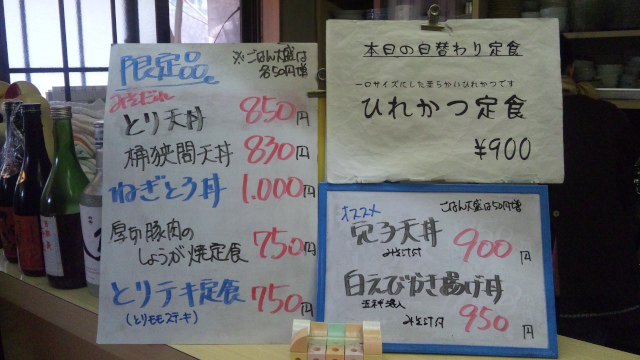 限定品。
※ごはん大盛は
各50円増
みそだれ
とり天丼 850円
桶狭間天丼 830円
ねぎとろ丼 1.000円
厚切豚肉の
しょうが焼定食 750円
とりテキ定食 750円
(とりモモステーキ)
本日の日替わり定食
一口サイズにした柔らかいひれかつです
ひれかつ定食
¥900
オススメ
ごはん大盛は50円増
穴子天丼 900円
みそ汁付
白えびかき揚げ丼
みそ汁付 950円